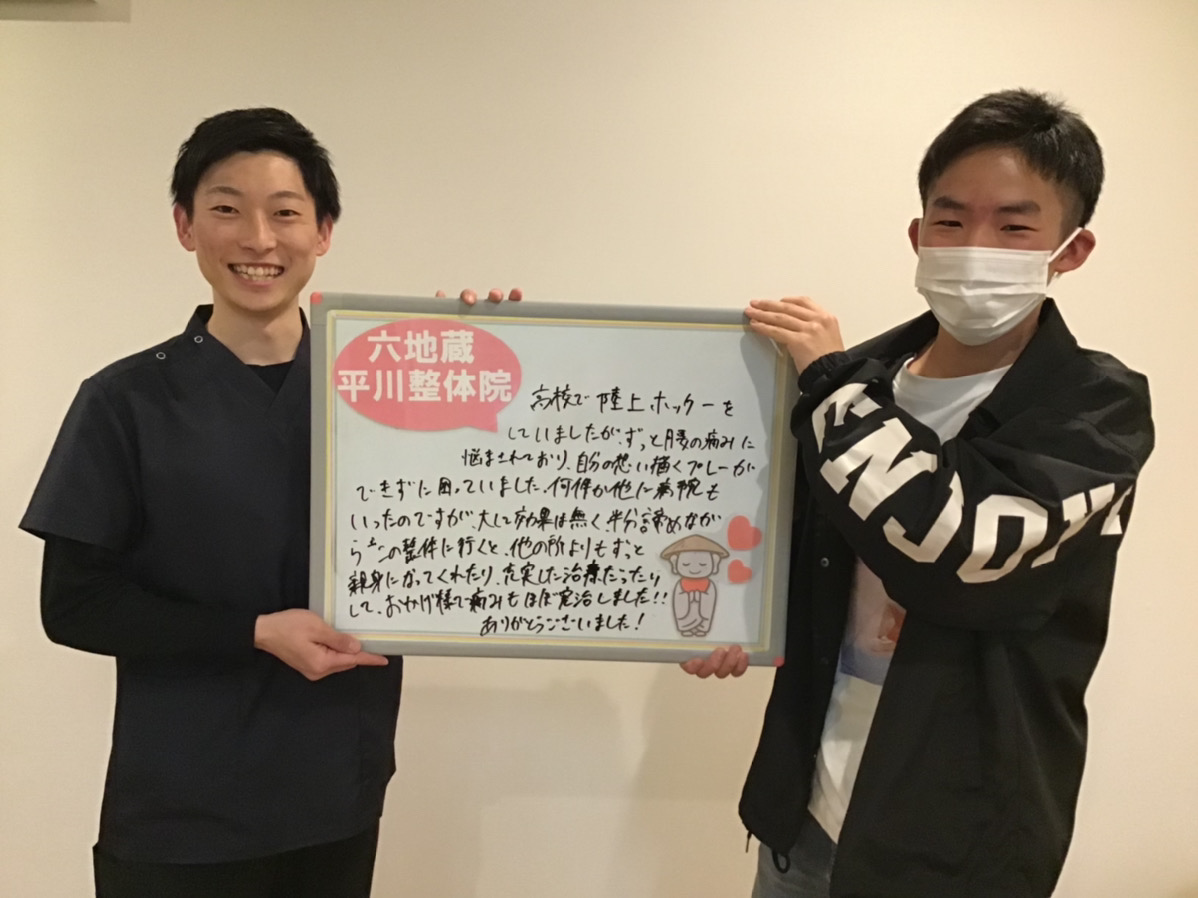 六地蔵
平川整体院
高校で陸上ホッケーを
していましたが、ずっと腰の痛みに
悩まされており、自分の想い描くプレーが
できずに困っていました。何件か他に病院も
いったのですが、大して効果は無く半分諦めなが
らこの整体に行くと、他の所よりもずっと
親身になってくれたり、充実した治療だったり
して、おかげ様で痛みもほぼ完治しました!!
ありがとうございました!
ENJOY